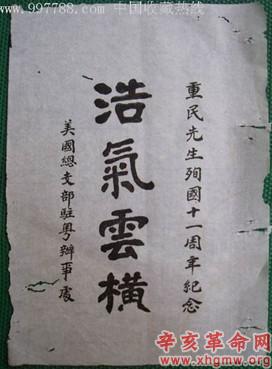 www.997788.com 中国收藏热线
重民先生殉國十一周年紀念
浩氣雲橫
美國總支部駐粵辦事處
辛亥革命网
www.xhgmw.org